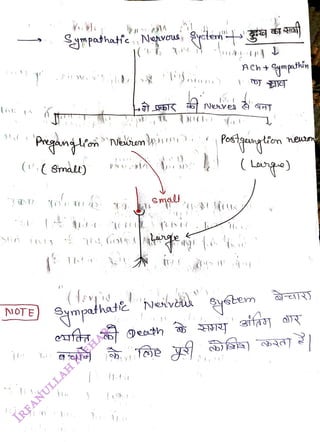 → Sympathatic Nervous System → दुःख का साथी
↓
ACh + Sympathin
का स्राव
→ दो प्रकार की Nerves से बना
Preganglion Neuron
Postganglion neuron
(Small)
(Large)
Small
Large
NOTE Sympathatic Nervous System बेचारा
व्यक्ति की Death के समय अंतिम बार
बचाने के लिए पूरी कोशिश करता है।
IRFANULLAH